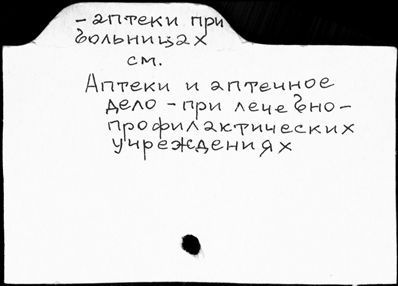 - аптеки при
больницах
см.
Аптеки и аптечное
дело - при лечебно-
профилактических
учреждениях